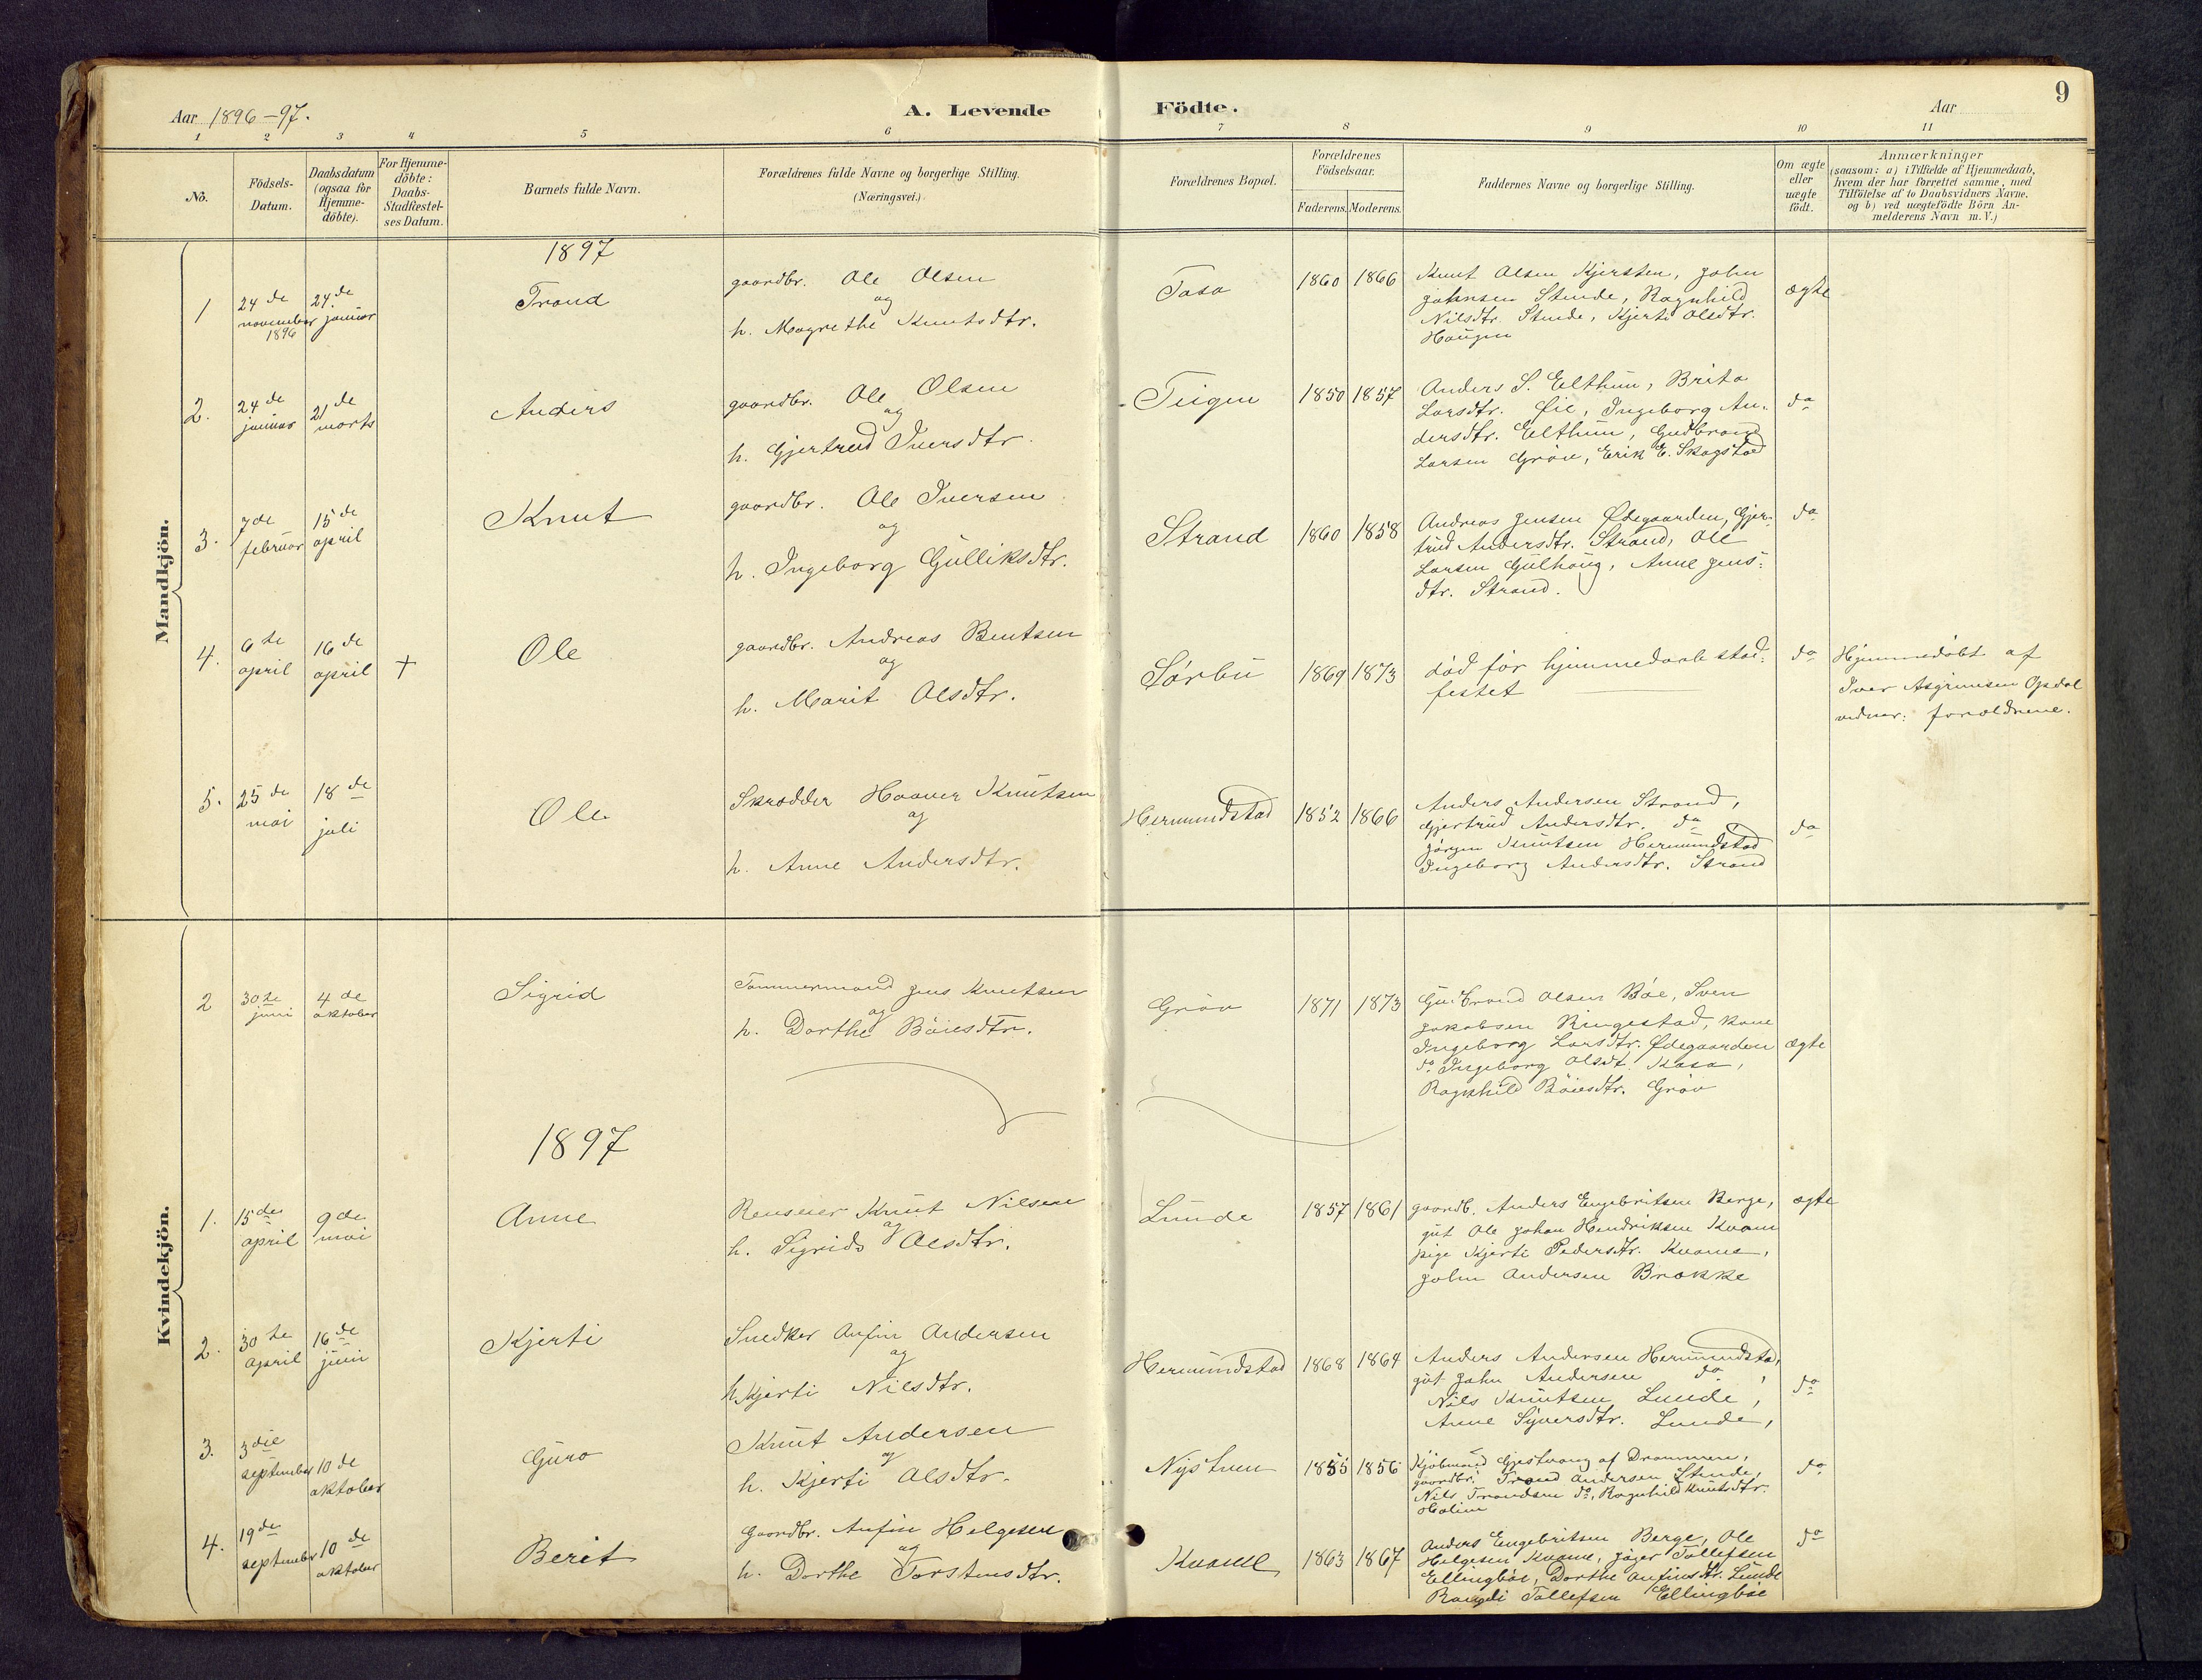 Aar 1896-97.
A. Levende Födte.
Aar
9
1
2
3
4
5
6
7
8
9
10
11
No.
Födsels-
Datum.
Daabsdatum
(ogsaa for
Hjemme-
döbte).
For Hjemme-
döbte:
Daabs-
Stadfæstel-
ses Datum.
Barnets fulde Navn.
Forældrenes fulde Navne og borgerlige Stilling.
(Næringsvei.)
Forældrenes Bopæl.
Forældrenes
Födselsaar.
Faderens.
Moderens.
Faddernes Navne og borgerlige Stilling.
Om ægte
eller
uægte
födt.
Anmærkninger
(saasom: a) i Tilfælde af Hjemmedaab,
hvem der har forrettet samme, med
Tilföielse af to Daabsvidners Navne.
og b) ved uægtefödte Börn An-
melderens Navn m. V.)
Mandkjön.
1897
1
24de
november
1896
24de
januar
Trond
gaardbr. Ole Olsen
og
h. Magrethe Knutsdtr.
Tasa
1860
1866
Knut Olsen Kjersten, John
Johnsen Stende, Ragnhild
Nilsdtr. Stende, Kjerti Olsdtr.
Haugen
ægte
2.
24de
januar
21de
marts
Anders
gaardbr. Ole Olsen
og
h. Gjertrud Iversdtr.
Teigen
1850
1857
Anders S. Elthun, Brita
Larsdtr. Øie, Ingeborg An-
dersdtr. Elthun, Gudbrand
Larsen Gröv, Erik E. Skogstad
do
3.
7de
februar
15de
april
Knut
gaardbr. Ole Iversen
og
h. Ingeborg Gulliksdtr.
Strand
1860
1858
Andreas Jensen Ødegaarden, Gjer-
trud Andersdtr. Strand, Ole
Larsen Gulhaug, Anne Jens-
dtr. Strand.
do
4.
6te
april
16de
april
+
Ole
gaardbr. Andreas Bentsen
og
h. Marit Olsdtr.
Sørbu
1869
1873
död før hjemmedaab stad-
festet
do
Hjemmedöbt af
Iver Asgrimsen Opdal
vidner: forældrene.
5.
25de
mai
18de
juli
Ole
Skrædder Haaver Knutsen
og
h. Anne Andersdtr.
Hermundstad
1852
1866
Anders Andersen Strand,
Gjertrud Andersdtr. do
Jörgen Knutsen Hermundstad
Ingeborg Andersdtr. Strand
do
Kvindekjön.
2
30te
juni
4de
oktober
Sigrid
Tømmermand Jens Knutsen
og
h. Dorthe Böiesdtr.
Gröv
1871
1873
Gudbrand Olsen Böe, Sven
Jakobsen Ringestad, kone
Ingeborg Larsdtr. Ødegaarden
do Ingeborg Olsdt. Kasa,
Ragnhild Böiesdtr. Gröv
ægte
1897
1.
15de
april
9de
mai
Anne
Renseier Knut Nilsen
og
h. Sigrid Olsdtr.
Lunde
1857
1861
gaardb. Anders Engebritsen Berge,
gut Ole Johan Hendriksen Kvam
pige Kjerti Pedersdtr. Kvame,
John Andersen Brække
ægte
2.
30te
april
16de
juni
Kjerti
Snedker Anfin Andersen
og
h. Kjerti Nilsdtr.
Hermundstad
1868
1864
Anders Andersen Hermundstad,
gut John Andersen do,
Nils Knutsen Lunde,
Anne Syversdtr. Lunde,
do
3.
3die
september
10de
oktober
Guro
Knut Andersen
og
h. Kjerti Olsdtr.
Nystuen
1855
1856
Kjöbmand Gjestvang af Drammen,
gaardbr. Trond Andersen Stende,
Nils Trondsen do, Ragnhild Knutsdtr.
Holien
do
4.
19de
september
10de
oktober
Berit
Gaardbr. Anfin Helgesen
og
h. Dorthe Torstensdtr.
Kvame
1863
1867
Anders Engebritsen Berge, Ole
Helgesen Kvame, Jöger Tollefsen
Ellingböe, Dorthe Anfinsdtr. Lunde
Rangdi Tollefsen Ellingböe
do